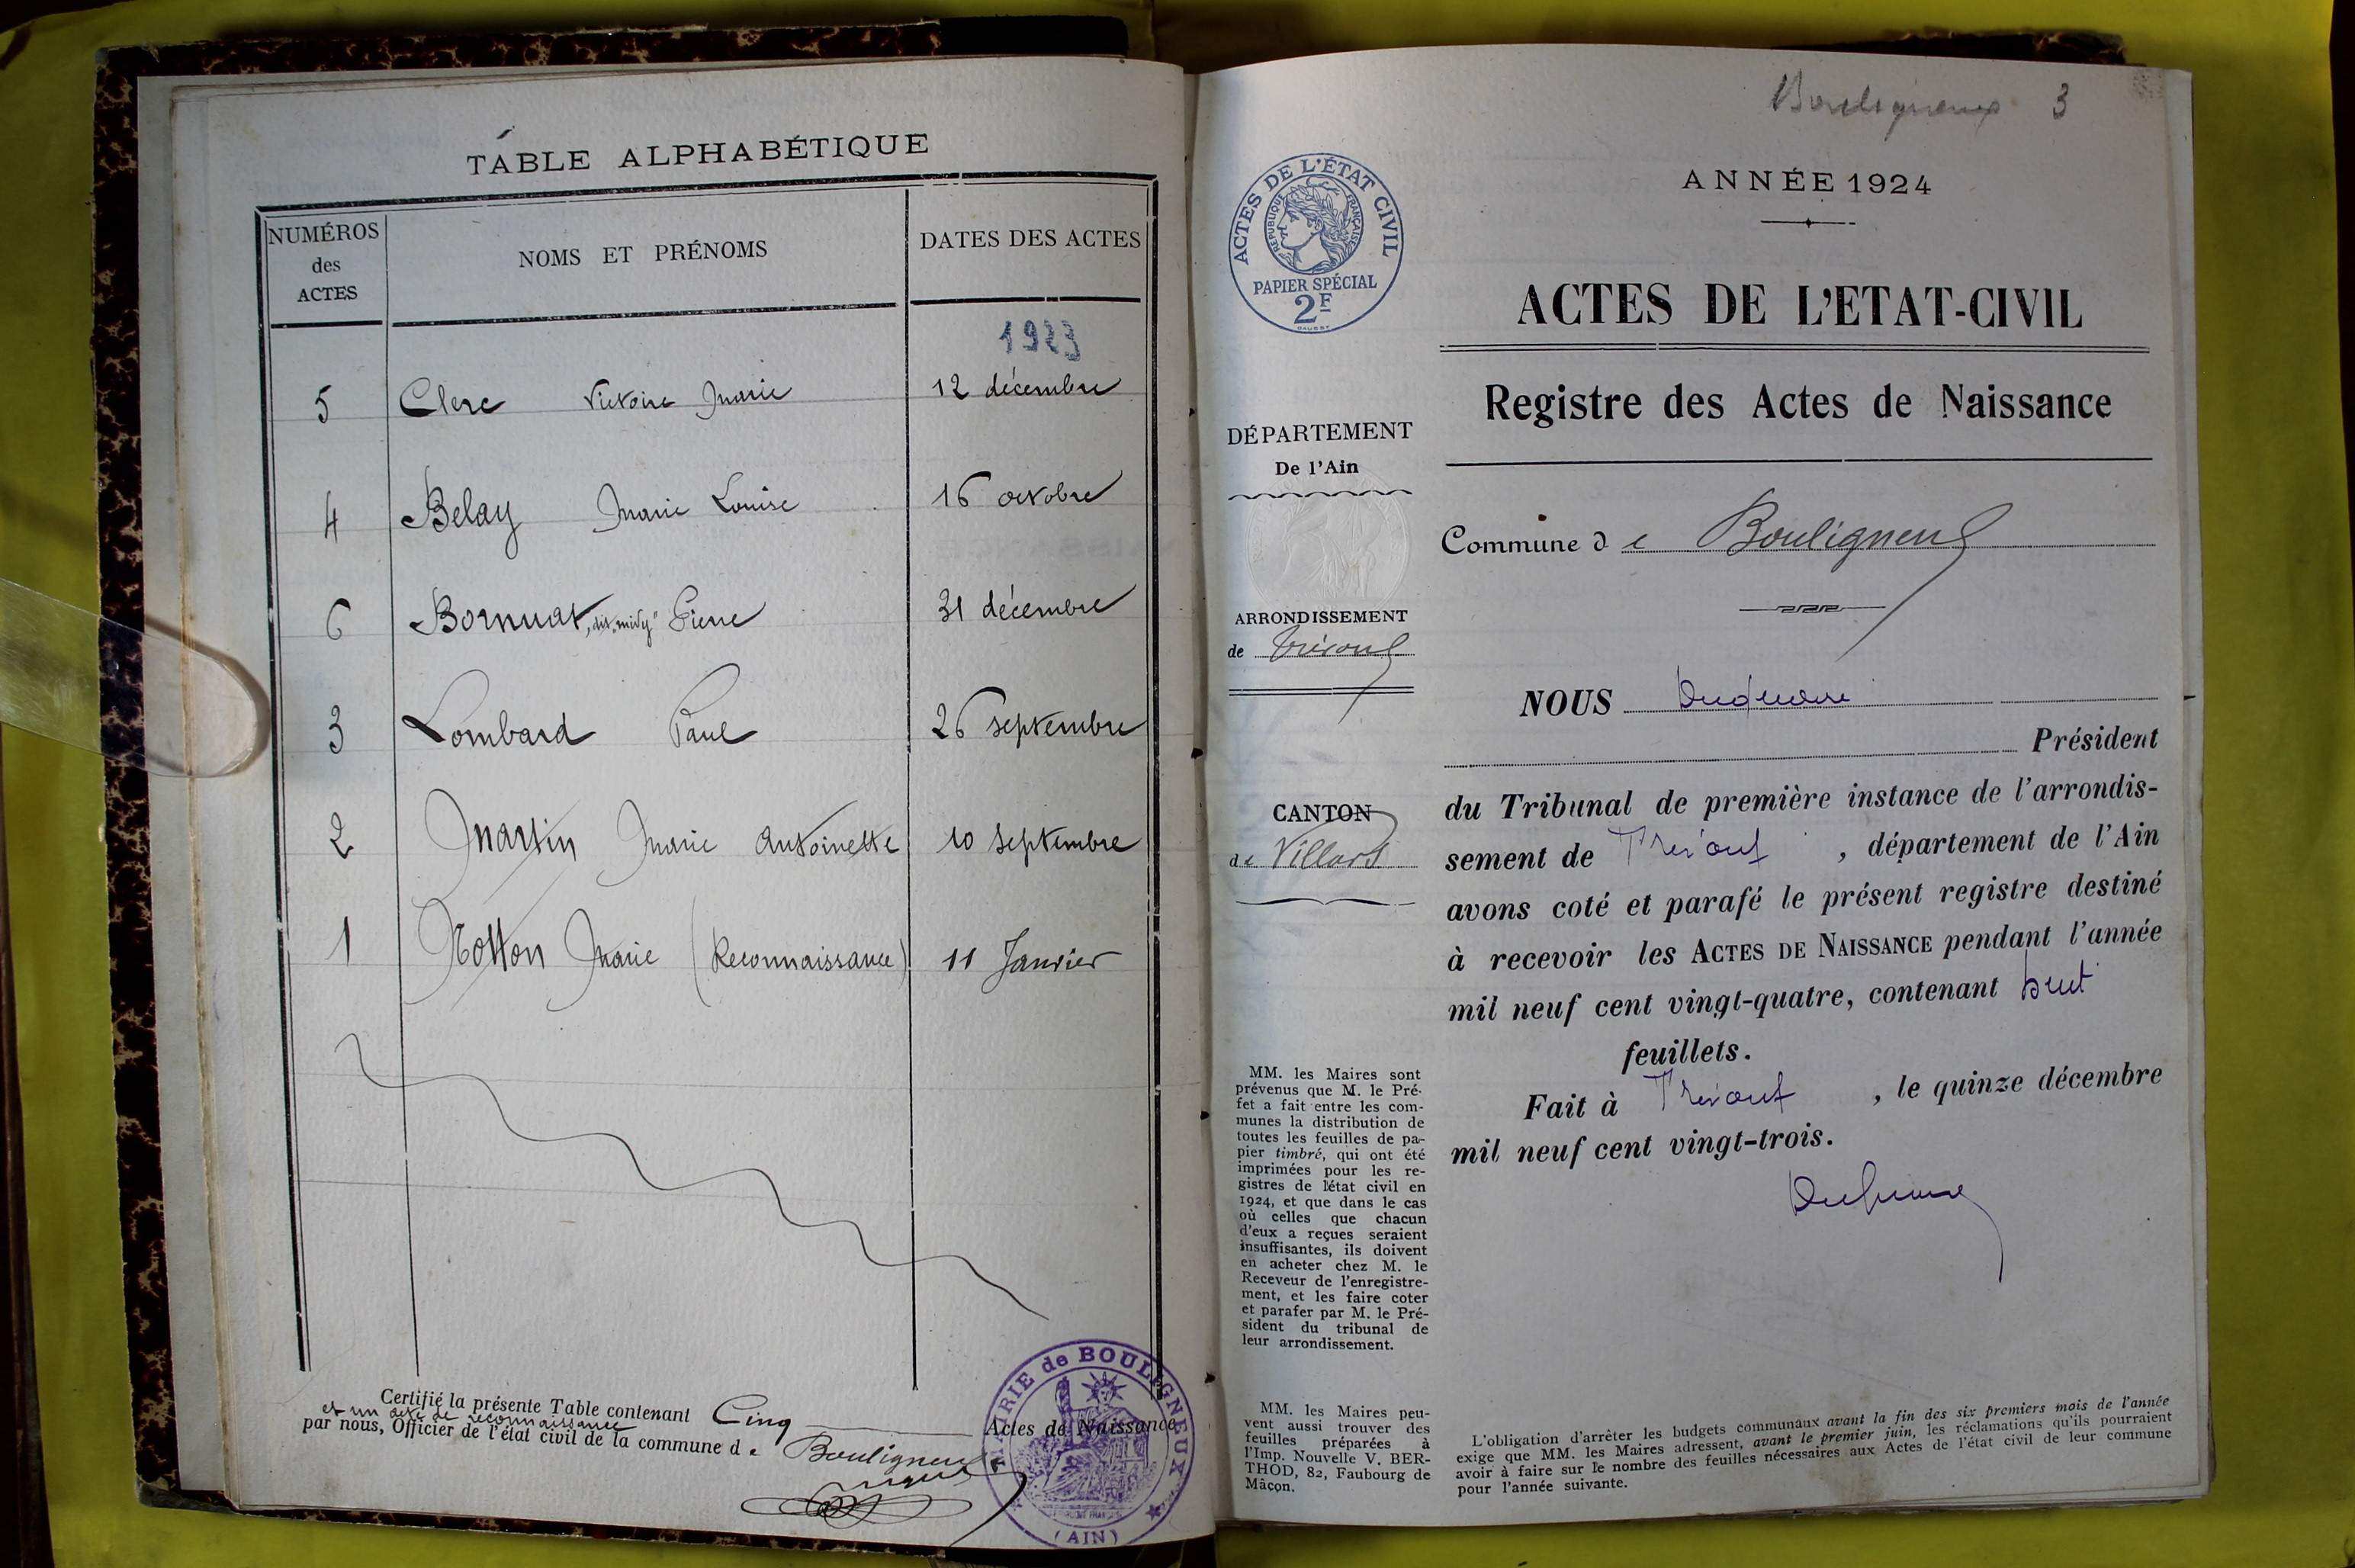 TABLE ALPHABÉTIQUE
NUMÉROS
des
ACTES
NOMS ET PRÉNOMS
DATES DES ACTES
1923
5 Clerc Victoire Marie 12 décembre
4 Belay Marie Louise 16 octobre
6 Bornuat, dit "midy" Pierre 31 décembre
3 Lombard Paul 26 septembre
2 Martin Marie Antoinette 10 septembre
1 Notton Marie (Reconnaissance) 11 Janvier
Certifié la présente Table contenant Cinq Actes de Naissance
et un acte de reconnaissance
par nous, Officier de l'état civil de la commune de Bouligneux
MAIRIE de BOULIGNEUX
(AIN)
Bouligneux 3
ACTES DE L'ÉTAT CIVIL
RÉPUBLIQUE FRANÇAISE
PAPIER SPÉCIAL
2F
ANNÉE 1924
ACTES DE L'ETAT-CIVIL
Registre des Actes de Naissance
DÉPARTEMENT
De l'Ain
Commune de Bouligneux
ARRONDISSEMENT
de Trévoux
CANTON
de Villars
NOUS
Président
du Tribunal de première instance de l'arrondis-
sement de Trévoux, département de l'Ain
avons coté et parafé le présent registre destiné
à recevoir les ACTES DE NAISSANCE pendant l'année
mil neuf cent vingt-quatre, contenant huit
feuillets.
Fait à Trévoux, le quinze décembre
mil neuf cent vingt-trois.
MM. les Maires sont
prévenus que M. le Pré-
fet a fait entre les com-
munes la distribution de
toutes les feuilles de pa-
pier timbré, qui ont été
imprimées pour les re-
gistres de l'état civil en
1924, et que dans le cas
où celles que chacun
d'eux a reçues seraient
insuffisantes, ils doivent
en acheter chez M. le
Receveur de l'enregistre-
ment, et les faire coter
et parafer par M. le Pré-
sident du tribunal de
leur arrondissement.
MM. les Maires peu-
vent aussi trouver des
feuilles préparées à
l'Imp. Nouvelle V. BER-
THOD, 82, Faubourg de
Mâcon.
L'obligation d'arrêter les budgets communaux avant la fin des six premiers mois de l'année
exige que MM. les Maires adressent, avant le premier juin, les réclamations qu'ils pourraient
avoir à faire sur le nombre des feuilles nécessaires aux Actes de l'état civil de leur commune
pour l'année suivante.